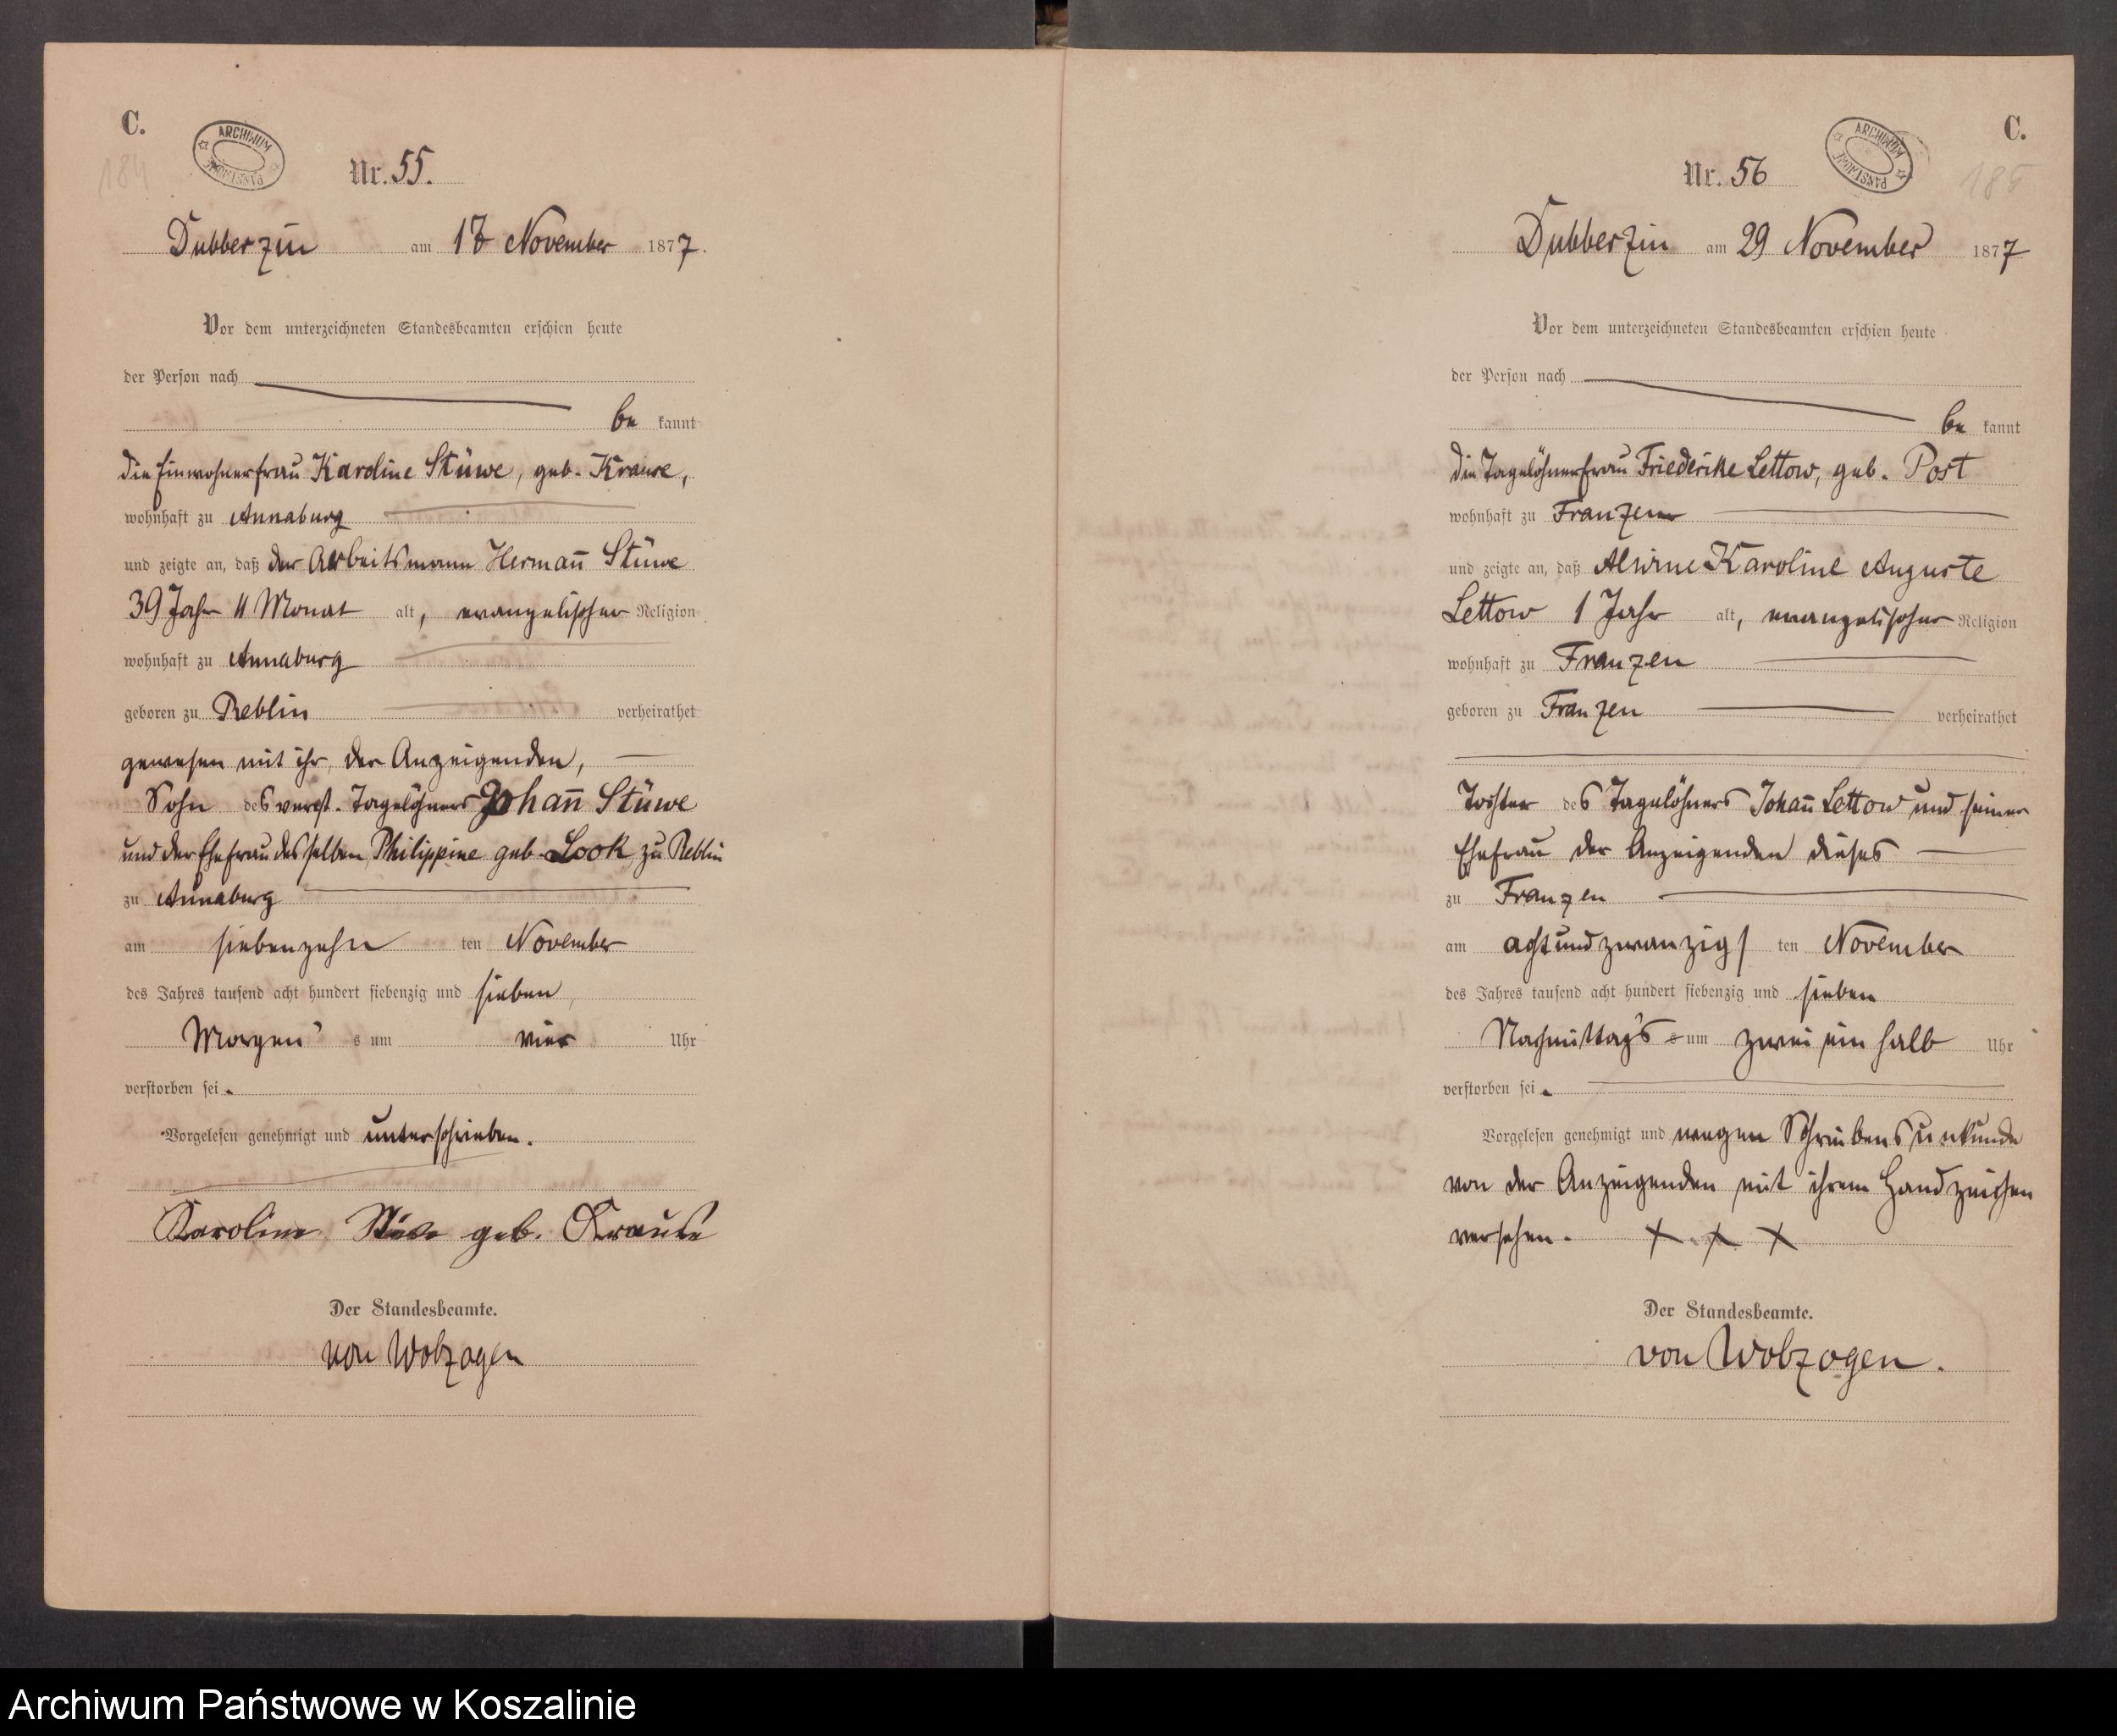 C.
ARCHIWUM PAŃSTWOWE
184
Nr. 55.
Dubberzin am 18 November 1877.
Vor dem unterzeichneten Standesbeamten erschien heute
der Person nach
be kannt
die Einwohnerfrau Karoline Stüwe, geb. Krause,
wohnhaft zu Annaburg
und zeigte an, daß der Arbeitsmann Herman̄ Stüwe
39 Jahr 11 Monat alt, evangelischer Religion
wohnhaft zu Annaburg
geboren zu Reblin verheirathet
gewesen mit ihr, der Anzeigenden,
Sohn des verst. Tagelöhners Johan̄ Stüwe
und der Ehefrau desselben Philippine geb. Look zu Reblin
zu Annaburg
am siebenzehn ten November
des Jahres tausend acht hundert siebenzig und sieben
Morgen s um vier Uhr
verstorben sei.
Vorgelesen genehmigt und unterschrieben.
Karoline Stüve geb. Krause
Der Standesbeamte.
von Wolzogen
C.
ARCHIWUM PAŃSTWOWE
185
Nr. 56
Dubberzin am 29 November 1877
Vor dem unterzeichneten Standesbeamten erschien heute
der Person nach
be kannt
die Tagelöhnerfrau Friederike Lettow, geb. Post
wohnhaft zu Franzen
und zeigte an, daß Alwine Karoline Auguste
Lettow 1 Jahr alt, evangelischer Religion
wohnhaft zu Franzen
geboren zu Franzen verheirathet
Tochter des Tagelöhners Johan̄ Lettow und seiner
Ehefrau der Anzeigenden dieses
zu Franzen
am acht und zwanzig ten November
des Jahres tausend acht hundert siebenzig und sieben
Nachmittag's s um zwei ein halb Uhr
verstorben sei.
Vorgelesen genehmigt und wegen Schreibensunkunde
von der Anzeigenden mit ihrem Handzeichen
versehen. X X X
Der Standesbeamte.
von Wolzogen.
Archiwum Państwowe w Koszalinie